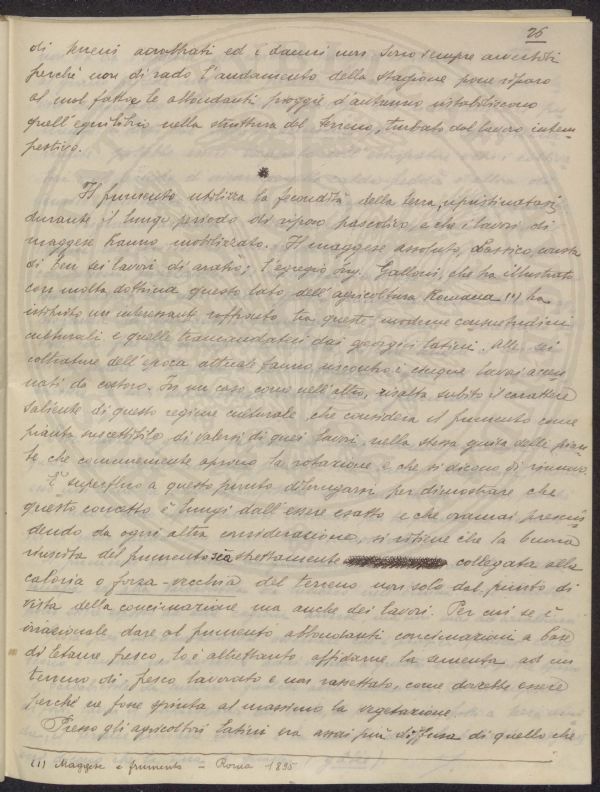 26
di terreni acrottrati ed i danni non sono sempre avvertiti
perchè non di rado l'andamento della stagione pone riparo
al mal fatto e le abbondanti pioggie d'autunno ristabiliscono
quell'equilibrio nella struttura del terreno, turbato dal lavoro intem-
pestivo.
*
Il frumento utilizza la fecondità della terra, ripristinatasi
durante il lungo periodo di riposo pascolivo, e che i lavori di
maggese hanno mobilizzato. Il maggese assoluto, classico, consta
di ben sei lavori di aratro; l'egregio ing. Galloni, che ha illustrato
con molta dottrina questo lato dell'agricoltura Romana (1) ha
istituito un interessante raffronto tra queste moderne consuetudini
culturali e quelle tramandateci dai georgici latini. Alle sei
coltrature dell'epoca attuale fanno riscontro i cinque lavori accen-
nati da costoro. In un caso come nell'altro, risalta subito il carattere
saliente di questo regime culturale, che considera il frumento come
pianta suscettibile di valersi di quei lavori, nella stessa guisa delle pian-
te che comunemente aprono la rotazione e che si dicono di rinnovo.
È superfluo a questo punto dilungarsi per dimostrare che
questo concetto è lungi dall'essere esatto e che oramai prescin-
dendo da ogni altra considerazione, si ritiene che la buona
riuscita del frumento sia strettamente collegata alla
caloria o forza-vecchia del terreno non solo dal punto di
vista della concimazione ma anche dei lavori. Per cui se è
irrazionale dare al frumento abbondanti concimazioni a base
di letame fresco, lo è altrettanto affidarne la sementa ad un
terreno di fresco lavorato e non rassettato, come dovrebbe essere
perchè ne fosse spinta al massimo la vegetazione.
Presso gli agricoltori latini era assai più diffusa di quello che
(1) Maggese e frumento - Roma 1895